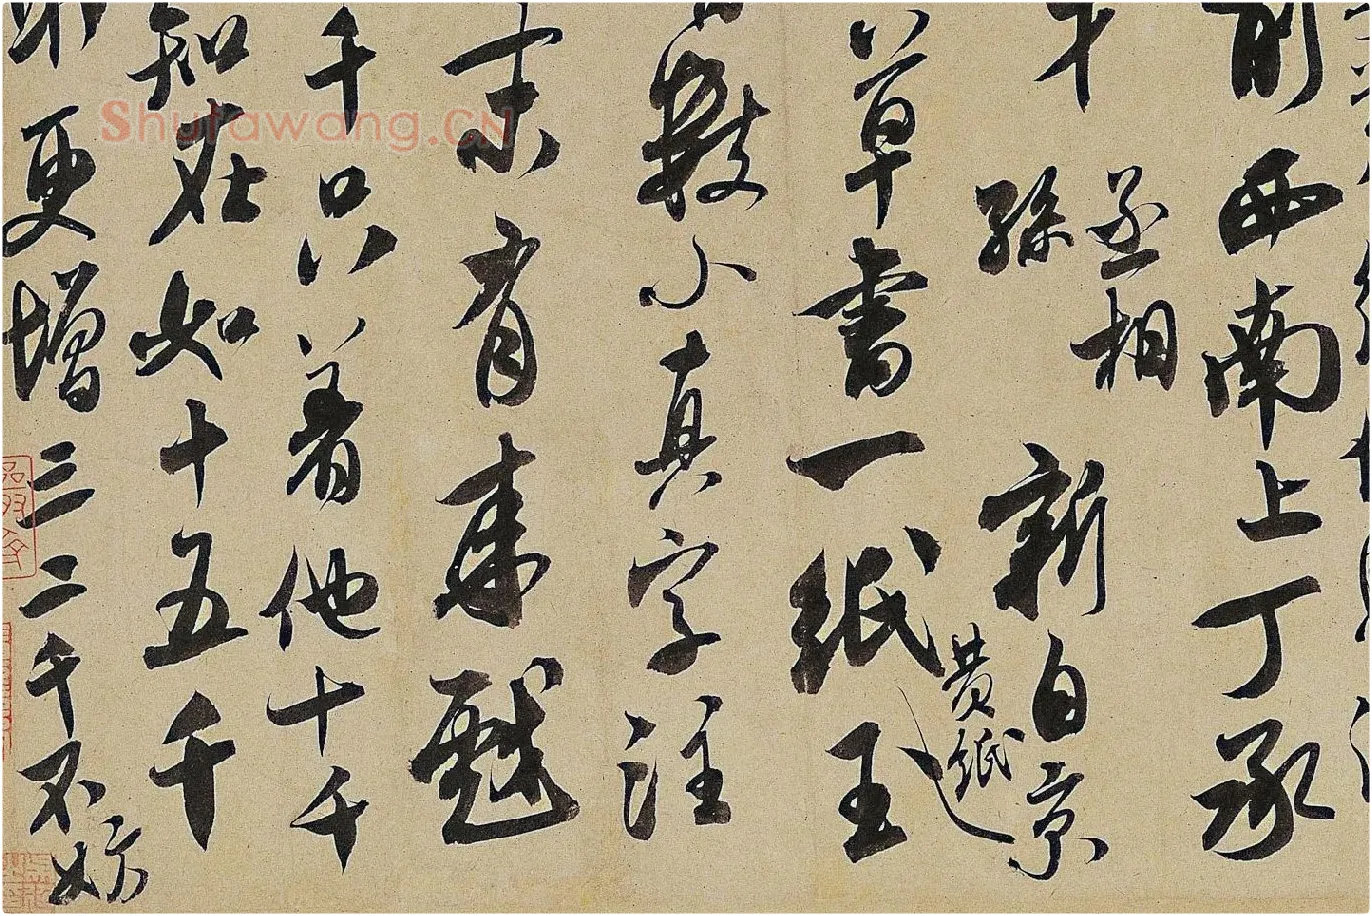 前西南上丁承
丞相
孫新自京
黃紙
草書一紙玉
數小真字注
末有來戲
千只着他十千
知在如十五千
更增三二千不妨
Shufawang.CN